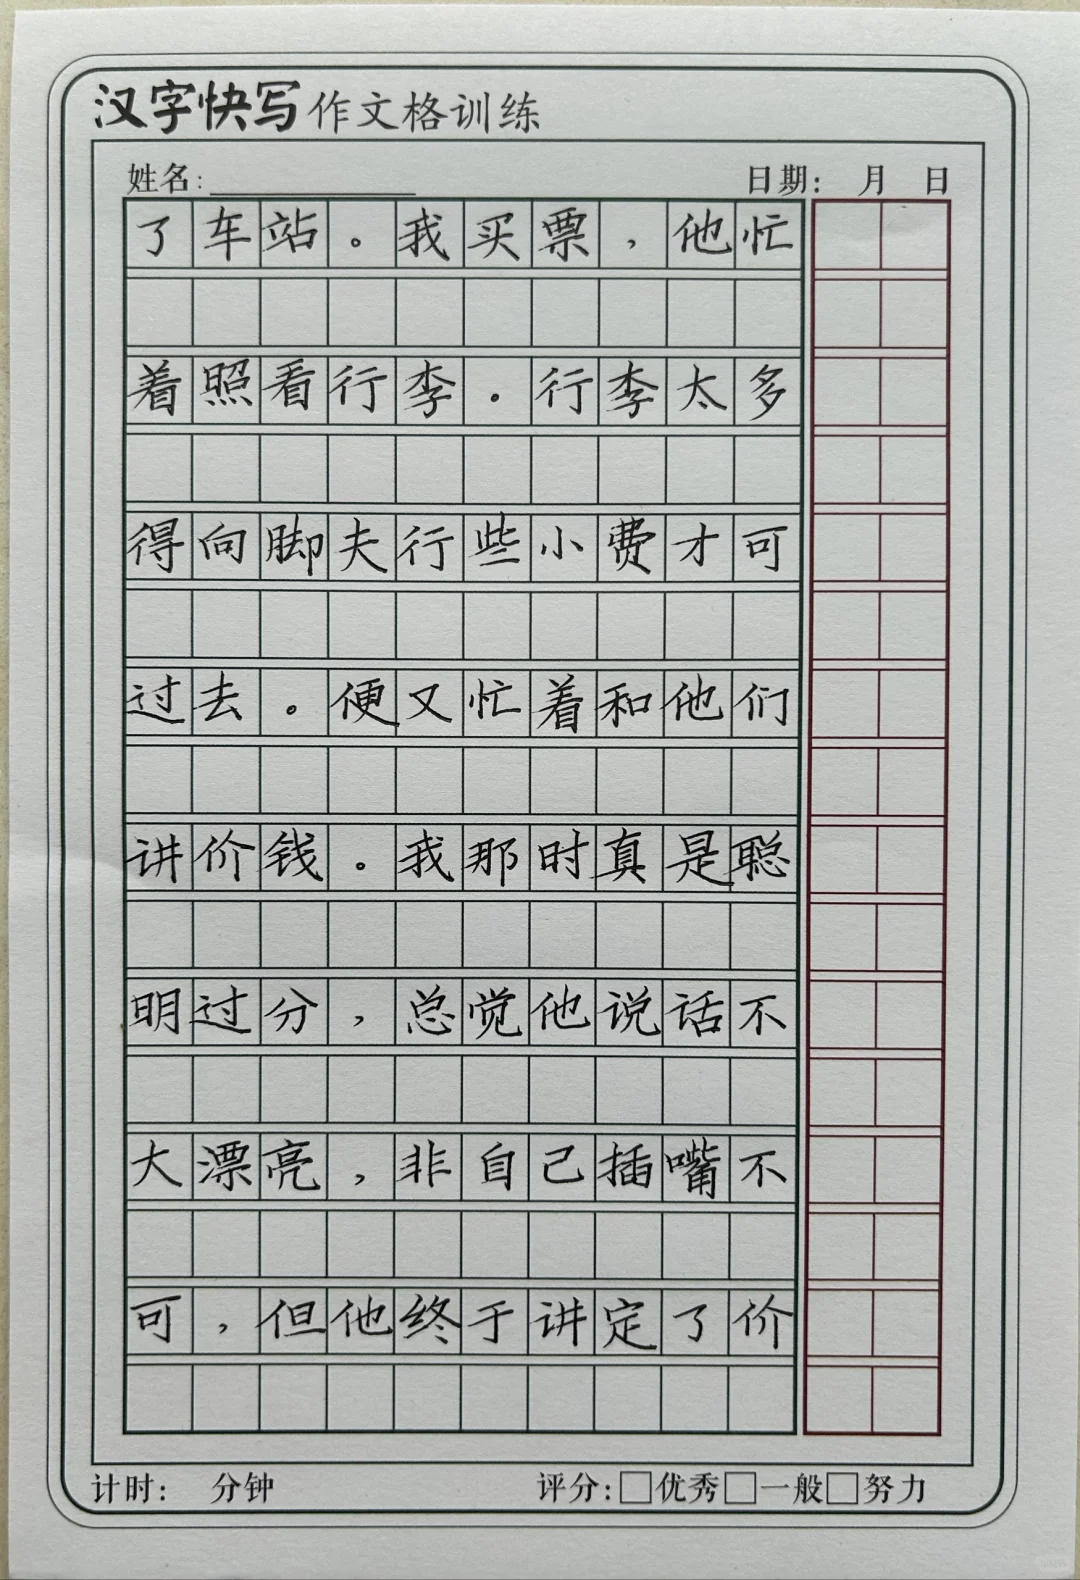 汉字快写作文格训练
姓名: 日期: 月 日
了车站。我买票,他忙
着照看行李。行李太多
得向脚夫行些小费才可
过去。便又忙着和他们
讲价钱。我那时真是聪
明过分,总觉他说话不
大漂亮,非自己插嘴不
可,但他终于讲定了价
计时: 分钟 评分:□优秀□一般□努力